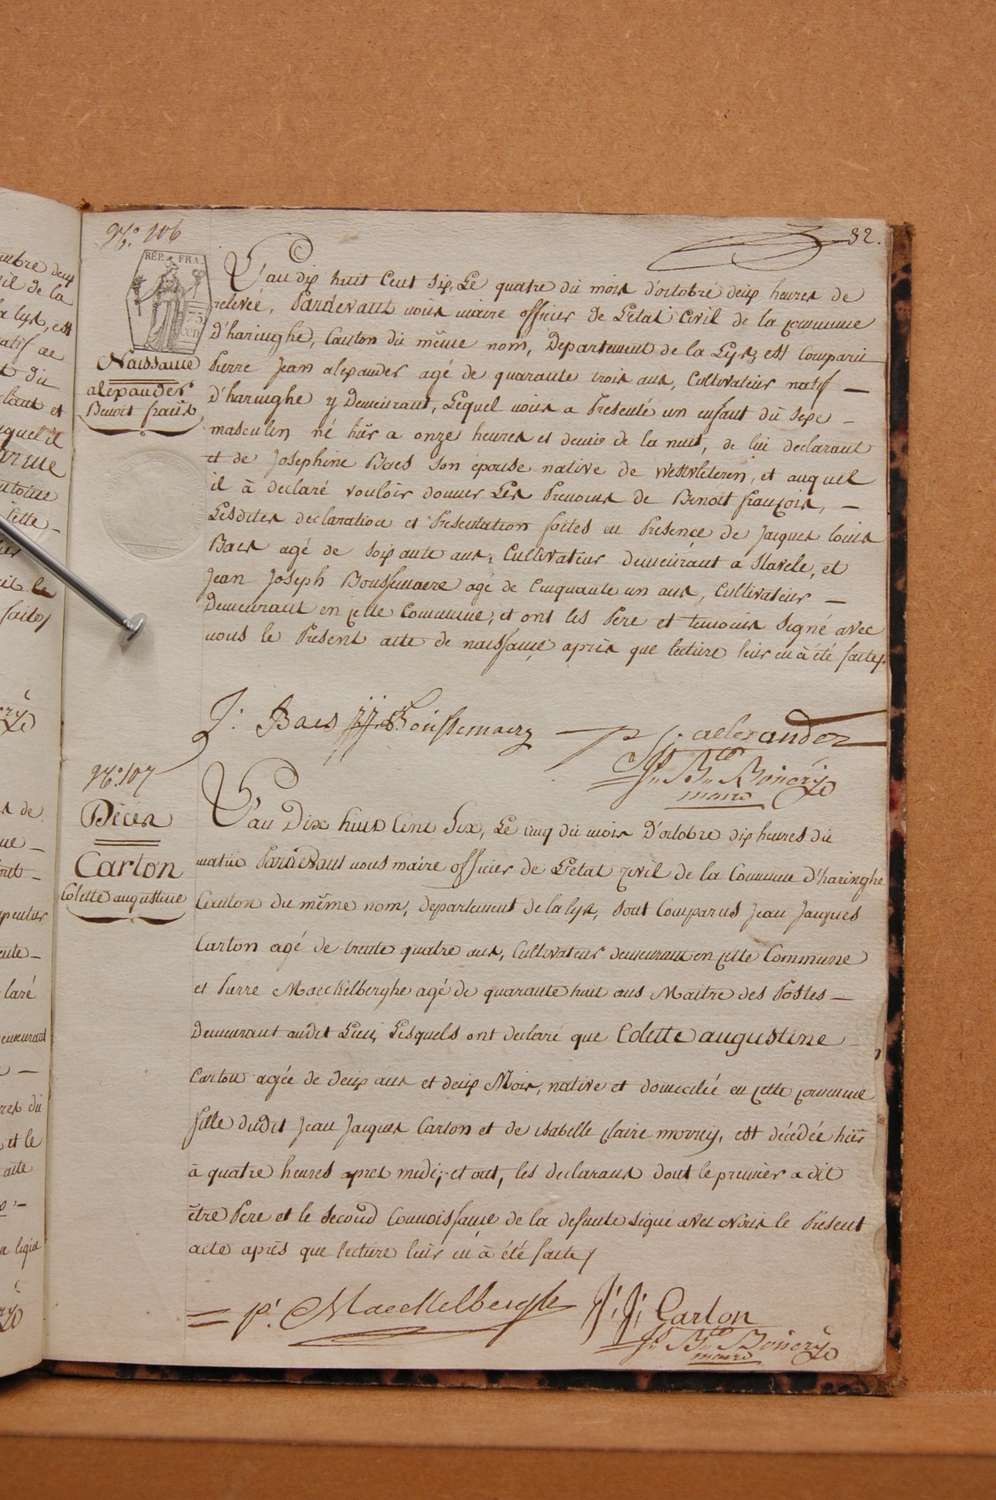 82.
N.º 106
REP. FRA.
75
Naissance
alexander
Benoit françois
L'an dix huit Cent Six, Le quatre du mois d'octobre deux heures de
relevée, Pardevant nous maire officier de L'etat Civil de la commune
d'haringhe, Canton du même nom, Departement de la Lys, est Comparu
Pierre Jean alexander agé de quarante trois ans, Cultivateur natif —
d'haringhe y Demeurant, Lequel nous a Presenté un enfant du sexe —
masculin né hier a onze heures et demie de la nuit, de lui declarant
et de Josephine Baes son épouse native de westvleteren, et auquel
il à declaré vouloir donner Les Prenoms de Benoit françois, —
Lesdites declaration et Presentation faites en Presence de Jacques louis
Baes agé de soixante ans, Cultivateur demeurant a Stavele, et
Jean Joseph Boussemaere agé de Cinquante un ans, Cultivateur —
Demeurant en cette Commune, et ont les Pere et temoins signé avec
nous le Present acte de naissance après que lecture leur en à été faite.
J: Baes J: J: Boussemaere P J: alexander
maire
N.º 107
Décès
Carton
Colette augustine
L'an Dix huit Cent Six, Le cinq du mois d'octobre dix heures du
matin Pardevant nous maire officier de L'etat civil de la Commune d'haringhe
Canton du même nom, departement de la lys, sont Comparus Jean Jacques
Carton agé de trente quatre ans, Cultivateur demeurant en cette Commune
et Pierre Maeckelberghe agé de quarante huit ans Maitre des Postes —
Demeurant audit Lieu, Lesquels ont declaré que Colette augustine
Carton agée de deux ans et deux Mois, native et domiciliée en cette commune
fille dudit Jean Jacques Carton et de isabelle claire morrey, est décédée hier
à quatre heures apres midi, et ont, les declarans dont le premier a dit
être Pere et le second Connoissance de la defunte signé avec Nous le Present
acte après que lecture leur en à été faite /
P. Maeckelberghe J: J: Carton
maire